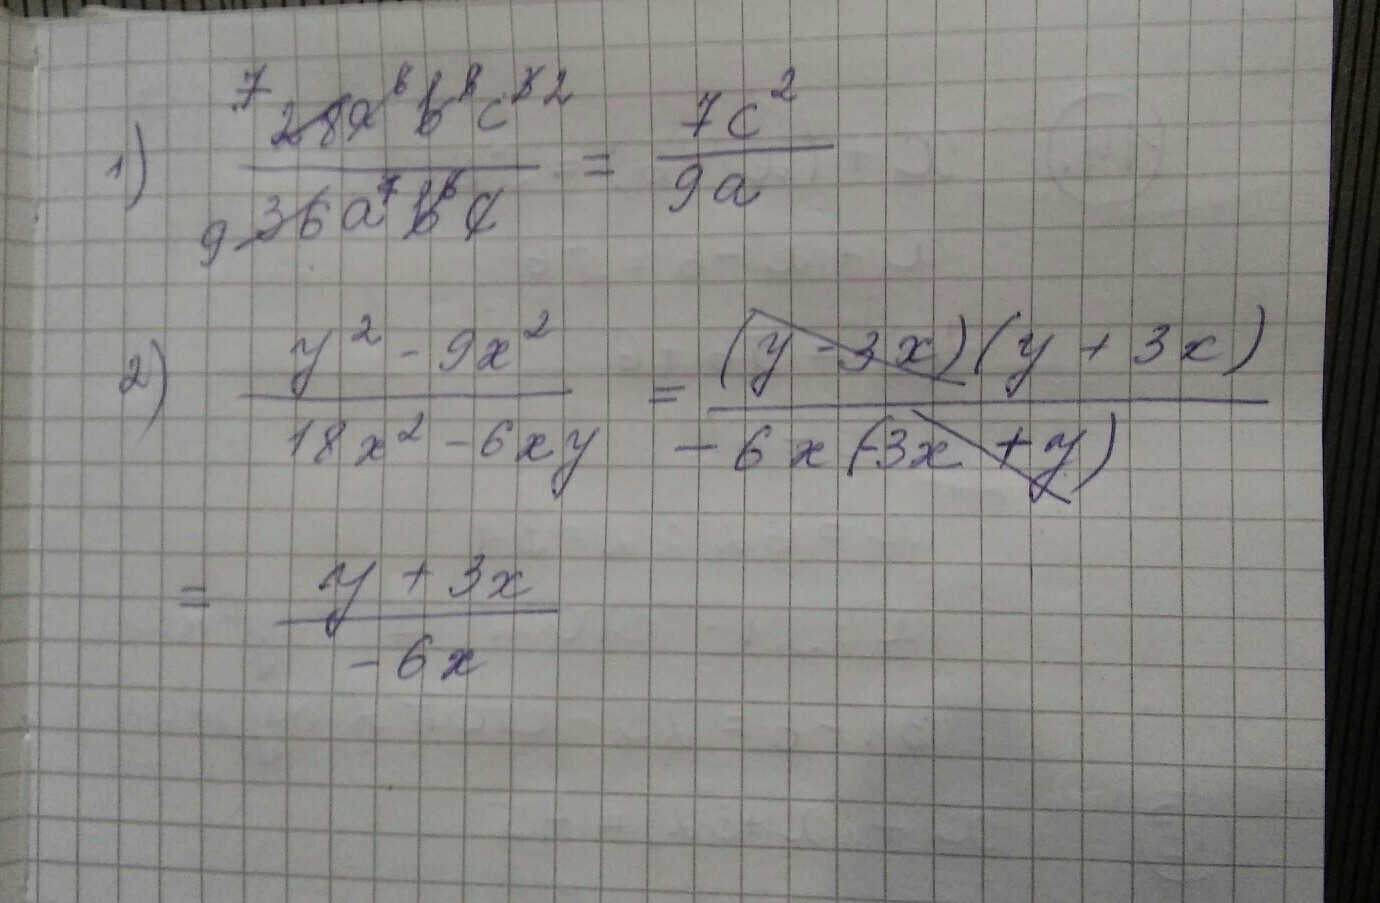 1) 7 28a⁶b⁸c³ 2 / 9 36a⁷b⁸c = 7c² / 9a
2) y² - 9x² / 18x² - 6xy = (y - 3x)(y + 3x) / - 6x(-3x + y)
= y + 3x / - 6x